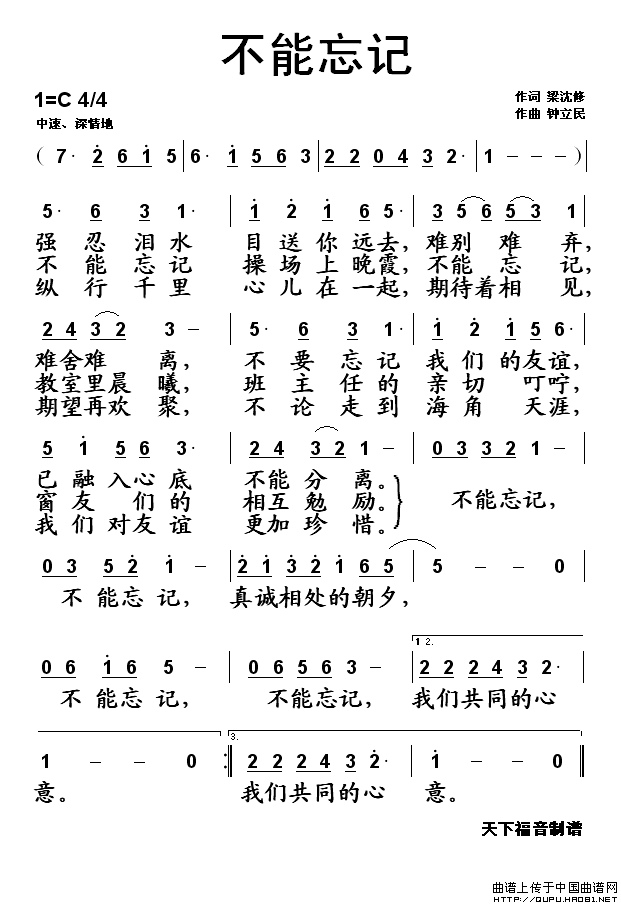 不能忘记
1=C 4/4
作词 梁沈修
中速、深情地
作曲 钟立民
( 7· 2 6 1 5 | 6· 1 5 6 3 | 2 2 0 4 3 2· | 1 - - - )
5· 6 3 1· | 1 2 1 6 5· | 3 5 6 5 3 1
强忍泪水 目送你远去, 难别难弃,
不能忘记 操场上晚霞, 不能忘记,
纵行千里 心儿在一起, 期待着相见,
2 4 3 2 3 - | 5· 6 3 1· | 1 2 1 5 6·
难舍难离, 不要忘记 我们的友谊,
教室里晨曦, 班主任的 亲切叮咛,
期望再欢聚, 不论走到 海角天涯,
5 1 5 6 3· | 2 4 3 2 1 - | 0 3 3 2 1 -
已融入心底 不能分离。
窗友们的 相互勉励。 不能忘记,
我们对友谊 更加珍惜。
0 3 5 2 1 - | 2 1 3 2 1 6 5 | 5 - - 0
不能忘记, 真诚相处的朝夕,
1 2.
0 6 1 6 5 - | 0 6 5 6 3 - | 2 2 2 4 3 2·
不能忘记, 不能忘记, 我们共同的心
3.
1 - - 0 :‖ 2 2 2 4 3 2· | 1 - - 0 ‖
意。 我们共同的心 意。
天下福音制谱
曲谱上传于中国曲谱网
HTTP://QUPU.HAO81.NET